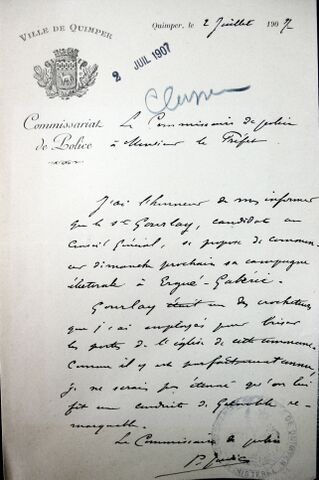 VILLE DE QUIMPER
Quimper, le 2 Juillet 1907
2 JUIL 1907
Commissariat
de Police
Le Commissaire de police
à Monsieur le Préfet
J'ai l'honneur de vous informer
que le sr Gourlay, candidat au
Conseil Général, se propose de commen-
cer dimanche prochain sa campagne
électorale à Ergué-Gabéric.
Gourlay était un des crocheteurs
que j'ai employés pour briser
les portes de l'église de cette commune.
Comme il y est parfaitement connu,
je ne serais pas étonné qu'on lui
fit une conduite de Grenoble re-
marquable.
Le Commissaire de police